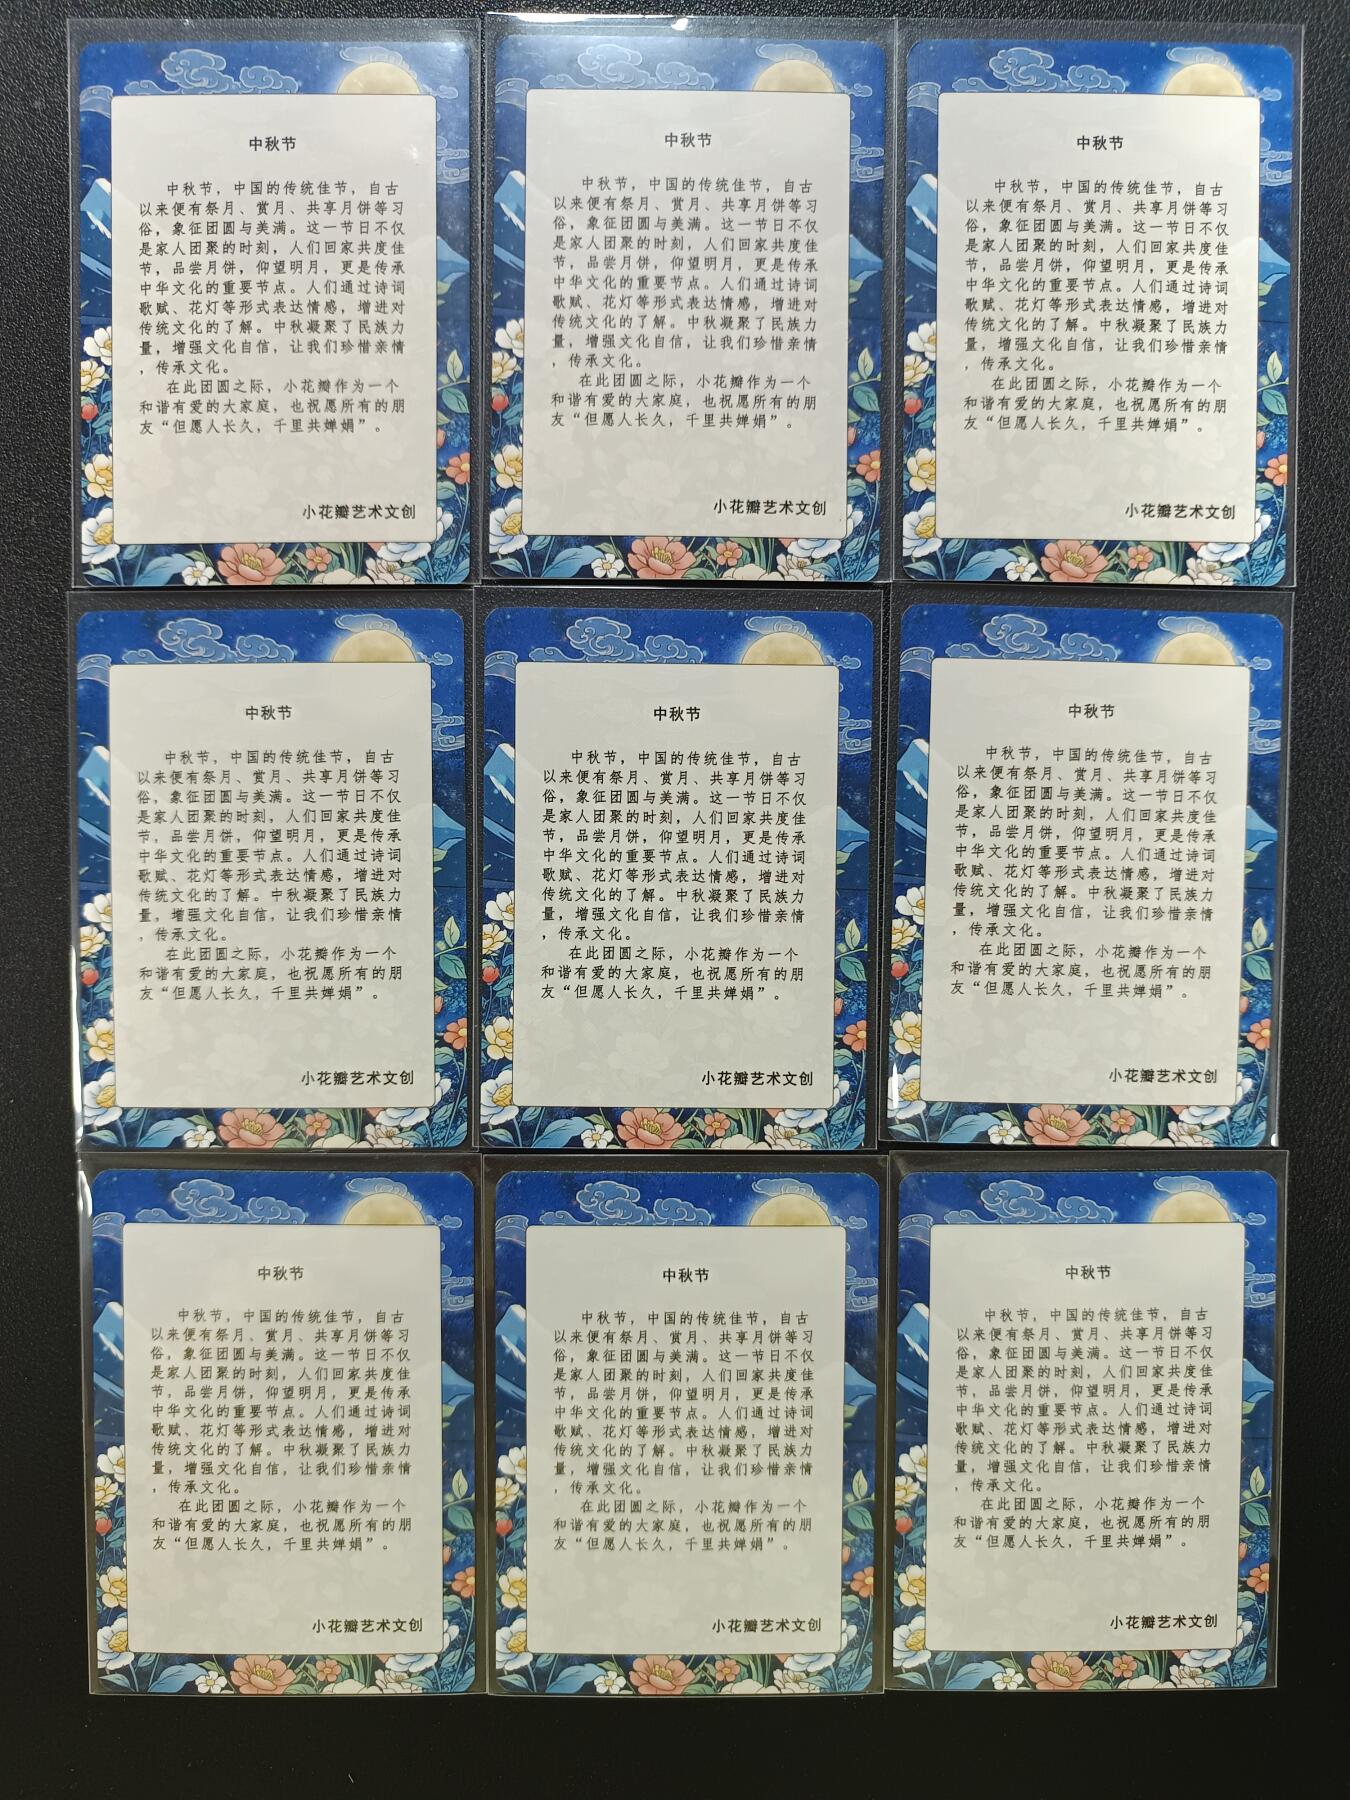 中秋节
中秋节，中国的传统佳节，自古
以来便有祭月、赏月、共享月饼等习
俗，象征团圆与美满。这一节日不仅
是家人团聚的时刻，人们回家共度佳
节，品尝月饼，仰望明月，更是传承
中华文化的重要节点。人们通过诗词
歌赋、花灯等形式表达情感，增进对
传统文化的了解。中秋凝聚了民族力
量，增强文化自信，让我们珍惜亲情
，传承文化。
在此团圆之际，小花瓣作为一个
和谐有爱的大家庭，也祝愿所有的朋
友“但愿人长久，千里共婵娟”。
小花瓣艺术文创
中秋节
中秋节，中国的传统佳节，自古
以来便有祭月、赏月、共享月饼等习
俗，象征团圆与美满。这一节日不仅
是家人团聚的时刻，人们回家共度佳
节，品尝月饼，仰望明月，更是传承
中华文化的重要节点。人们通过诗词
歌赋、花灯等形式表达情感，增进对
传统文化的了解。中秋凝聚了民族力
量，增强文化自信，让我们珍惜亲情
，传承文化。
在此团圆之际，小花瓣作为一个
和谐有爱的大家庭，也祝愿所有的朋
友“但愿人长久，千里共婵娟”。
小花瓣艺术文创
中秋节
中秋节，中国的传统佳节，自古
以来便有祭月、赏月、共享月饼等习
俗，象征团圆与美满。这一节日不仅
是家人团聚的时刻，人们回家共度佳
节，品尝月饼，仰望明月，更是传承
中华文化的重要节点。人们通过诗词
歌赋、花灯等形式表达情感，增进对
传统文化的了解。中秋凝聚了民族力
量，增强文化自信，让我们珍惜亲情
，传承文化。
在此团圆之际，小花瓣作为一个
和谐有爱的大家庭，也祝愿所有的朋
友“但愿人长久，千里共婵娟”。
小花瓣艺术文创
中秋节
中秋节，中国的传统佳节，自古
以来便有祭月、赏月、共享月饼等习
俗，象征团圆与美满。这一节日不仅
是家人团聚的时刻，人们回家共度佳
节，品尝月饼，仰望明月，更是传承
中华文化的重要节点。人们通过诗词
歌赋、花灯等形式表达情感，增进对
传统文化的了解。中秋凝聚了民族力
量，增强文化自信，让我们珍惜亲情
，传承文化。
在此团圆之际，小花瓣作为一个
和谐有爱的大家庭，也祝愿所有的朋
友“但愿人长久，千里共婵娟”。
小花瓣艺术文创
中秋节
中秋节，中国的传统佳节，自古
以来便有祭月、赏月、共享月饼等习
俗，象征团圆与美满。这一节日不仅
是家人团聚的时刻，人们回家共度佳
节，品尝月饼，仰望明月，更是传承
中华文化的重要节点。人们通过诗词
歌赋、花灯等形式表达情感，增进对
传统文化的了解。中秋凝聚了民族力
量，增强文化自信，让我们珍惜亲情
，传承文化。
在此团圆之际，小花瓣作为一个
和谐有爱的大家庭，也祝愿所有的朋
友“但愿人长久，千里共婵娟”。
小花瓣艺术文创
中秋节
中秋节，中国的传统佳节，自古
以来便有祭月、赏月、共享月饼等习
俗，象征团圆与美满。这一节日不仅
是家人团聚的时刻，人们回家共度佳
节，品尝月饼，仰望明月，更是传承
中华文化的重要节点。人们通过诗词
歌赋、花灯等形式表达情感，增进对
传统文化的了解。中秋凝聚了民族力
量，增强文化自信，让我们珍惜亲情
，传承文化。
在此团圆之际，小花瓣作为一个
和谐有爱的大家庭，也祝愿所有的朋
友“但愿人长久，千里共婵娟”。
小花瓣艺术文创
中秋节
中秋节，中国的传统佳节，自古
以来便有祭月、赏月、共享月饼等习
俗，象征团圆与美满。这一节日不仅
是家人团聚的时刻，人们回家共度佳
节，品尝月饼，仰望明月，更是传承
中华文化的重要节点。人们通过诗词
歌赋、花灯等形式表达情感，增进对
传统文化的了解。中秋凝聚了民族力
量，增强文化自信，让我们珍惜亲情
，传承文化。
在此团圆之际，小花瓣作为一个
和谐有爱的大家庭，也祝愿所有的朋
友“但愿人长久，千里共婵娟”。
小花瓣艺术文创
中秋节
中秋节，中国的传统佳节，自古
以来便有祭月、赏月、共享月饼等习
俗，象征团圆与美满。这一节日不仅
是家人团聚的时刻，人们回家共度佳
节，品尝月饼，仰望明月，更是传承
中华文化的重要节点。人们通过诗词
歌赋、花灯等形式表达情感，增进对
传统文化的了解。中秋凝聚了民族力
量，增强文化自信，让我们珍惜亲情
，传承文化。
在此团圆之际，小花瓣作为一个
和谐有爱的大家庭，也祝愿所有的朋
友“但愿人长久，千里共婵娟”。
小花瓣艺术文创
中秋节
中秋节，中国的传统佳节，自古
以来便有祭月、赏月、共享月饼等习
俗，象征团圆与美满。这一节日不仅
是家人团聚的时刻，人们回家共度佳
节，品尝月饼，仰望明月，更是传承
中华文化的重要节点。人们通过诗词
歌赋、花灯等形式表达情感，增进对
传统文化的了解。中秋凝聚了民族力
量，增强文化自信，让我们珍惜亲情
，传承文化。
在此团圆之际，小花瓣作为一个
和谐有爱的大家庭，也祝愿所有的朋
友“但愿人长久，千里共婵娟”。
小花瓣艺术文创